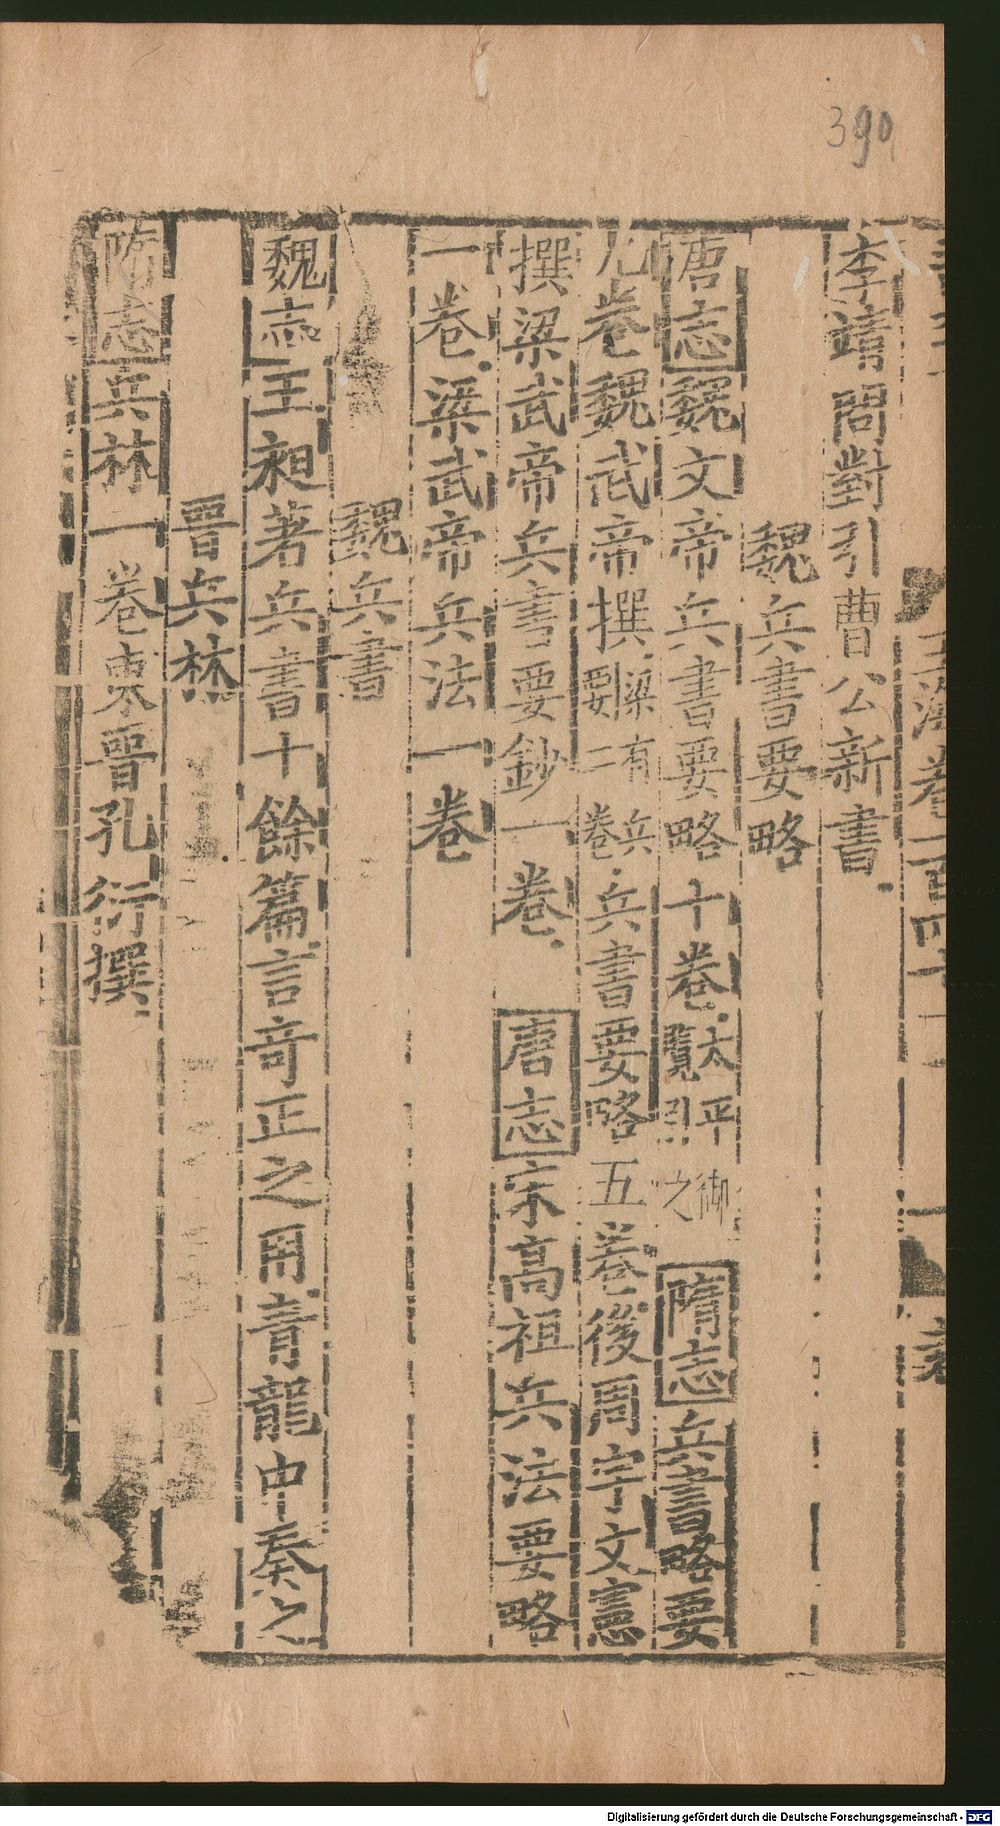 390
李靖問對引曹公新書
魏兵書要略
唐志魏文帝兵書要略十卷太平御覽引之隋志兵書略要
九卷魏武帝撰梁有兵要二卷兵書要略五卷後周宇文憲
撰梁武帝兵書要鈔一卷唐志宋高祖兵法要略
一卷梁武帝兵法一卷
魏兵書
魏志王昶著兵書十餘篇言奇正之用青龍中奏之
晉兵林
隋志兵林一卷東晉孔衍撰
Digitalisierung gefördert durch die Deutsche Forschungsgemeinschaft - DFG